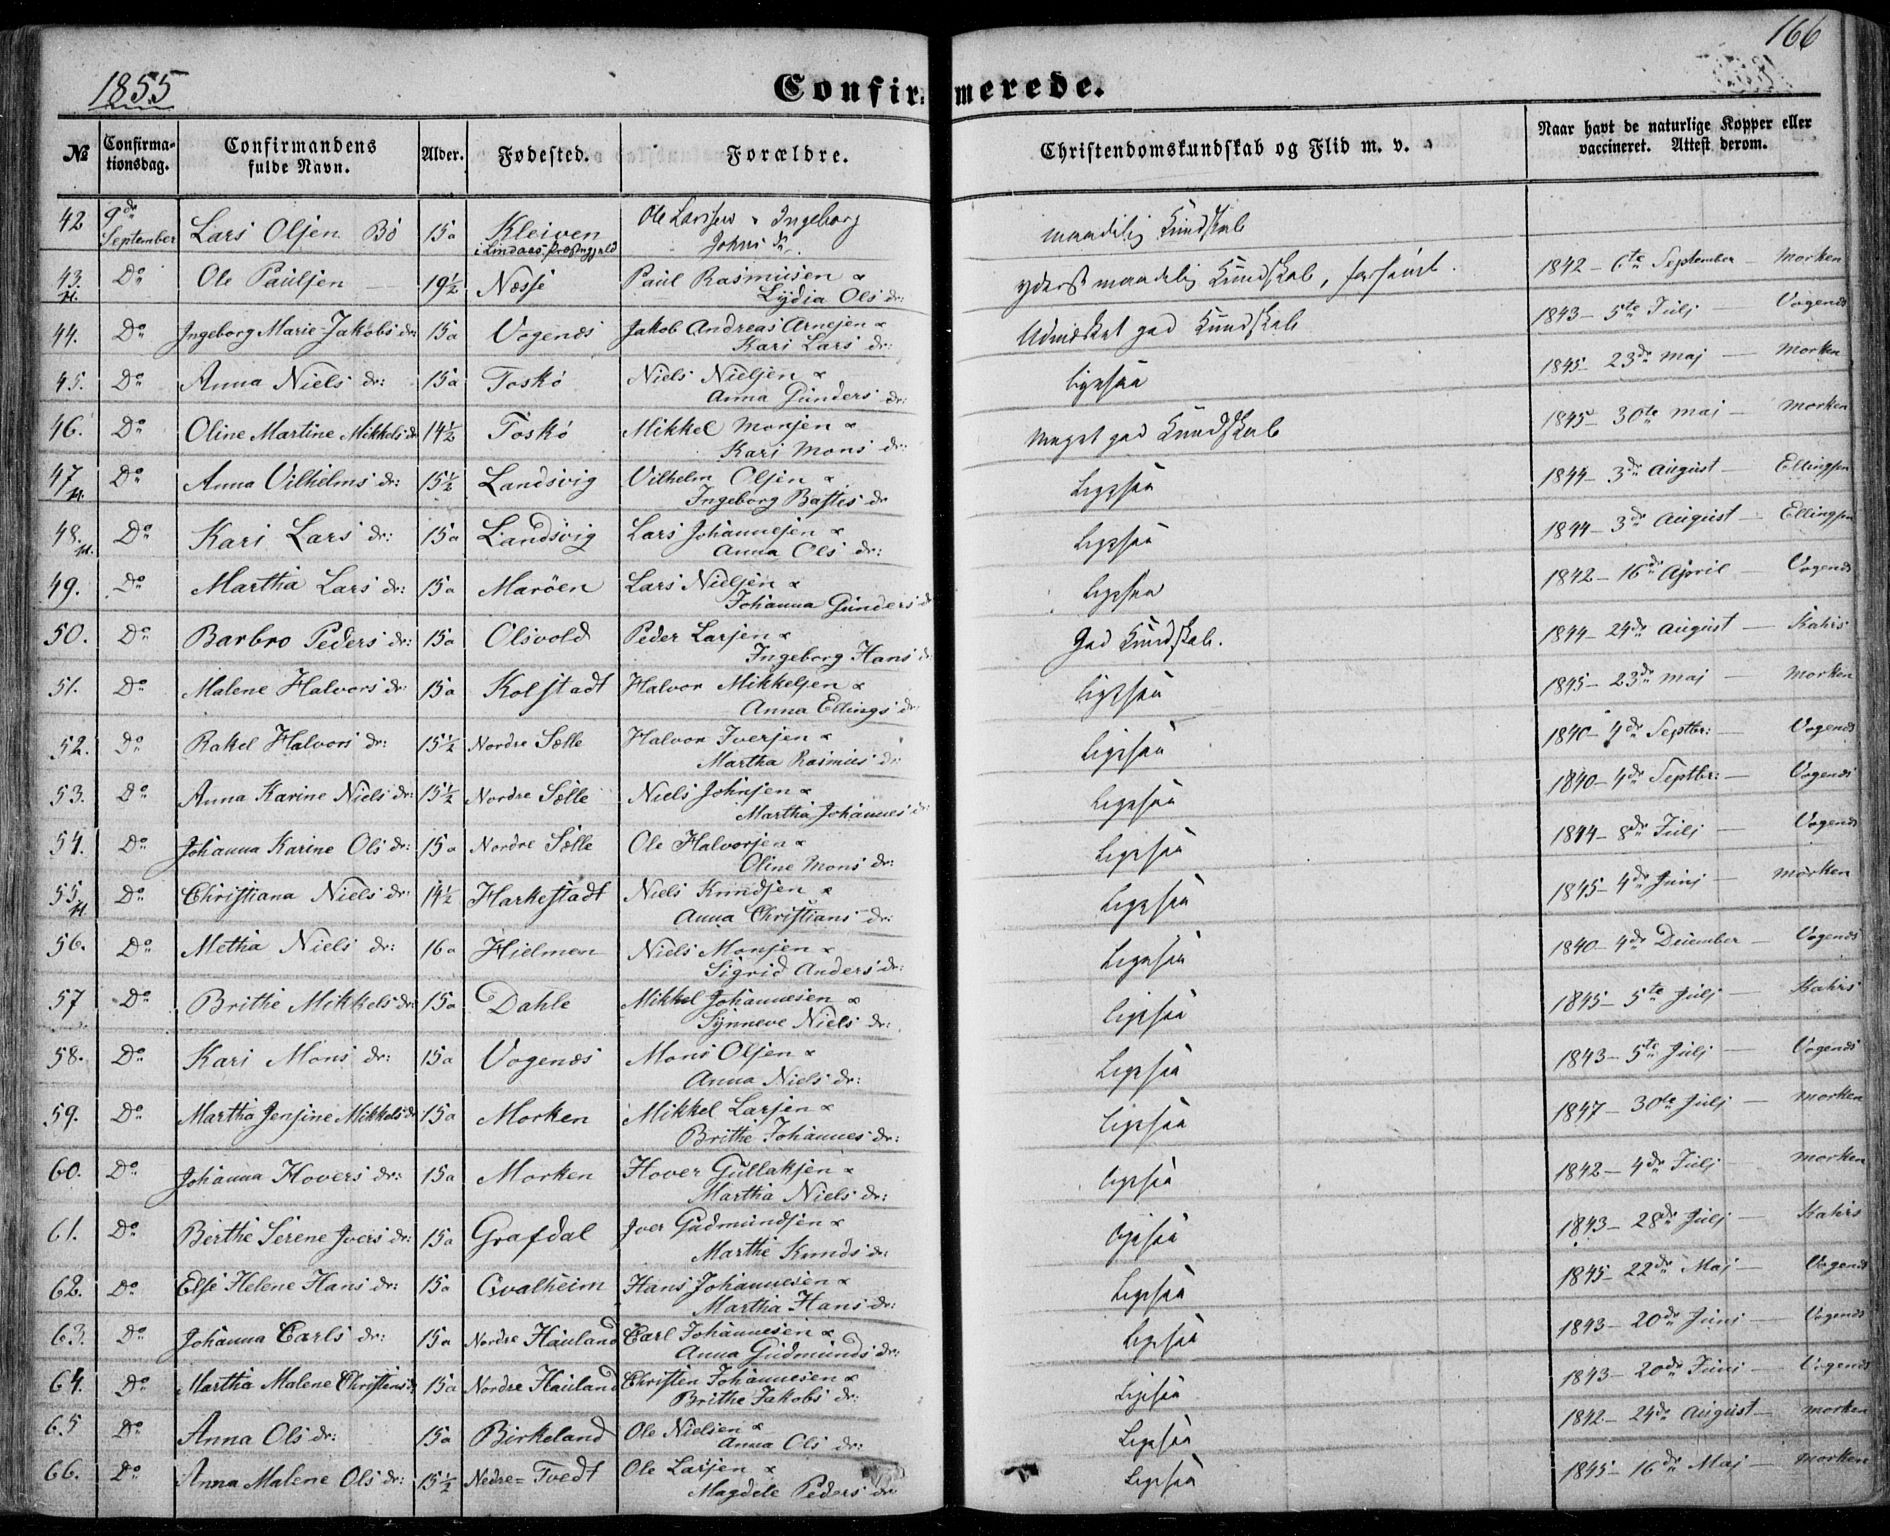 166
1855
Confirmerede.
№ Confirmationsdag. Confirmandens fulde Navn. Alder. Fødested. Forældre. Christendomskundskab og Flid m. v. Naar havt de naturlige Kopper eller vaccineret. Attest derom.
42 9de September Lars Olsen Bö 15a Kleiven i Lindaas Præstegjeld Ole Larssen & Ingeborg Johns dr. maadelig Kundskab
43. Do Ole Paulsen 19½ Næsse Paul Rasmusen & Lydia Ols dr: yderst maadelig Kundskab, forsømt. 1842 – 6te September – Morken
44. Do Ingeborg Marie Jakobs dr: 15a Vogenæs Jakob Andreas Arnesen & Kari Lars dr: Udmærket god Kundskab 1843 – 5te Julj – Vogenæs
45. Do Anna Niels dr: 15a Toskö Niels Nielsen & Anna Gunders dr: ligesaa 1845 – 23de Maj – Morken
46. Do Oline Martine Mikkels dr 14½ Toskö Mikkel Monsen & Kari Mons dr: Meget god Kundskab 1845 – 30te Maj – Morken
47 Do Anna Vilhelms dr: 15½ Landsvig Vilhelm Olsen & Ingeborg Bastes dr Ligesaa 1844 – 3de August – Ellingsen
48. Do Kari Lars dr: 15a Landsvig Lars Johannesen & Anna Ols dr: Ligesaa 1844 – 3de August – Ellingsen
49. Do Martha Lars dr: 15a Maröen Lars Nielsen & Johanna Gunders dr Ligesaa 1842 – 16de April – Vogenæs
50. Do Barbro Peders dr: 15a Olsvold Peder Larsen & Ingeborg Hans dr: God Kundskab. 1844 – 24de August – Kahrs
51. Do Malene Halvors dr: 15a Kolstadt Halvor Mikkelsen & Anna Ellings dr Ligesaa 1845 – 23de Maj – Morken
52. Do Rakel Halvors dr: 15½ Nordre Sælle Halvor Iversen & Martha Rasmus dr Ligesaa 1840 – 4de Septbr: – Vogenæs
53. Do Anna Karine Niels dr: 15½ Nordre Sælle Niels Johnsen & Martha Johannes dr Ligesaa 1840 – 4de Septbr: – Vogenæs
54. Do Johanna Karine Ols dr: 15a Nordre Sælle Ole Halvorsen & Oline Mons dr: Ligesaa 1844 – 8de Julj – Vogenæs
55 Do Christiana Niels dr: 14½ Harkestadt Niels Knudsen & Anna Christians dr: Ligesaa 1845 – 4de Junj – Morken
56. Do Metha Niels dr: 16a Hielmen Niels Monsen & Sigrid Anders dr: Ligesaa 1840 – 4de December – Vogenæs
57 Do Brithe Mikkels dr: 15a Dahle Mikkel Johannesen & Synneve Niels dr: Ligesaa 1845 – 5te Julj – Kahrs
58. Do Kari Mons dr: 15a Vogenæs Mons Olsen & Anna Niels dr: Ligesaa 1843 – 5te Julj – Vogenæs
59. Do Martha Jensine Mikkels dr 15a Morken Mikkel Larsen & Brithe Johannes dr: Ligesaa 1847 – 30te Julj – Morken
60. Do Johanna Hovers dr: 15a Morken Hover Gullaksen & Martha Niels dr: Ligesaa 1842 – 4de Julj – Morken
61. Do Berthe Serene Ivers dr: 15a Grafdal Iver Gudmundsen & Marthe Knuds dr: Ligesaa 1843 – 28de Julj – Kahrs
62. Do Else Helene Hans dr: 15a Qvalheim Hans Johannesen & Martha Hans dr: Ligesaa 1845 – 22de Maj – Vogenæs
63. Do Johanna Carls dr: 15a Nordre Hauland Carl Johannesen & Anna Gudmunds dr: Ligesaa 1843 – 20de Junj – Vogenæs
64. Do Martha Malene Christens dr 15a Nordre Hauland Christen Johannesen & Brithe Jakobs dr: Ligesaa 1843 – 20de Junj – Vogenæs
65 Do Anna Ols dr: 15a Birkeland Ole Nielsen & Anna Ols dr: Ligesaa 1842 – 24de August – Morken
66. Do Anna Malene Ols dr: 15½ Nedre= Tvedt Ole Larsen & Magdele Peders dr Ligesaa 1845 – 16de Maj – Morken